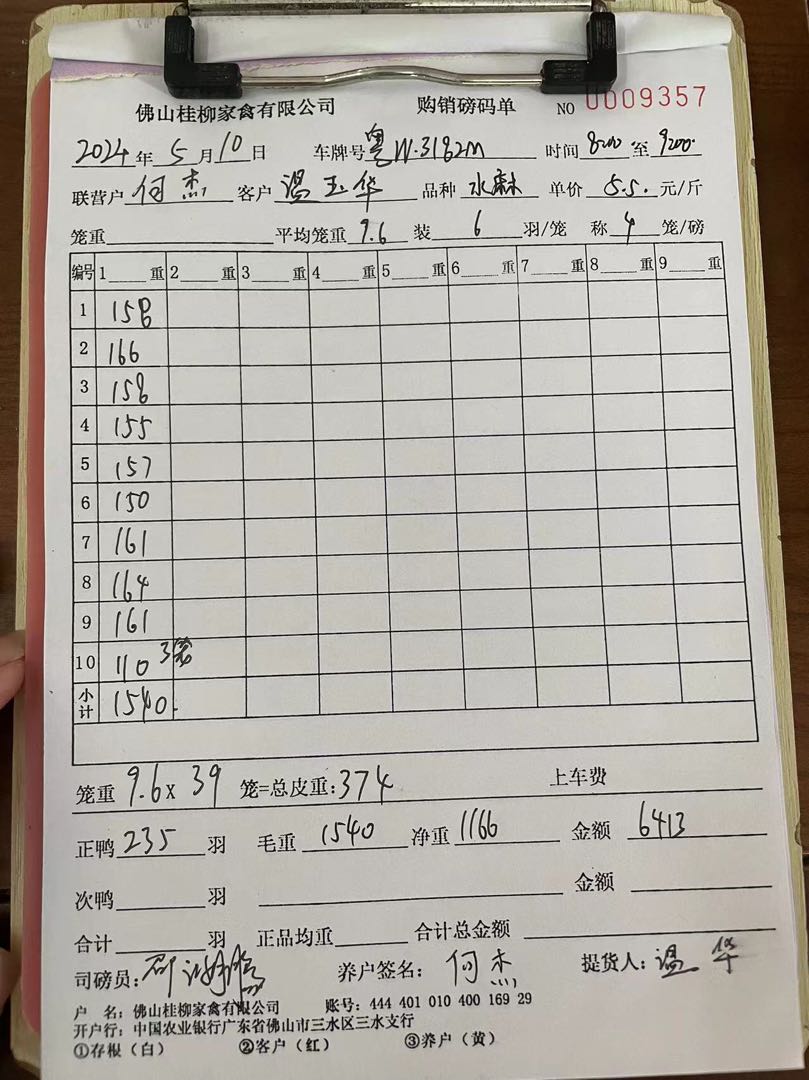 佛山桂柳家禽有限公司 购销磅码单 NO 0009357
2024年5月10日 车牌号粤W·3182M 时间8200至9200.
联营户何杰 客户温玉华 品种水麻 单价5.5.元/斤
笼重 平均笼重9.6 装6羽/笼 称4笼/磅
编号 1 重 2 重 3 重 4 重 5 重 6 重 7 重 8 重 9 重
1 158
2 166
3 158
4 155
5 157
6 150
7 161
8 164
9 161
10 110 3笼
小计 1540.
笼重9.6x39笼=总皮重:374 上车费
正鸭235羽 毛重1540净重1166 金额6413
次鸭 羽 金额
合计 羽 正品均重 合计总金额
司磅员: 养户签名:何杰 提货人:温华
户 名:佛山桂柳家禽有限公司 账号:444 401 010 400 169 29
开户行:中国农业银行广东省佛山市三水区三水支行
①存根(白) ②客户(红) ③养户(黄)